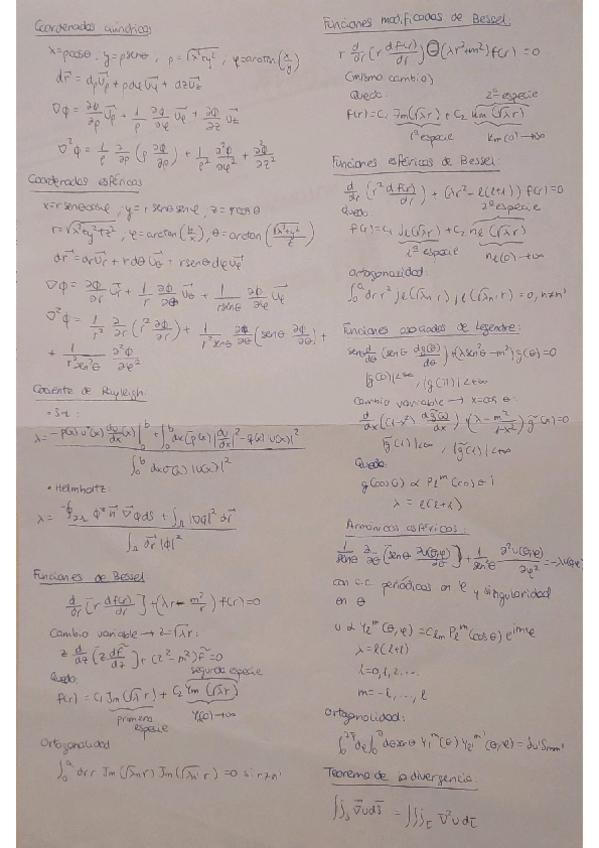 Coordenadas cilíndricas
x=ρcosθ, y=ρsenθ, ρ=√(x²+y²), φ=arctan(x/y)
dr⃗ = dρu⃗ρ + ρdφu⃗φ + dzu⃗z
∇φ = ∂φ/∂ρ u⃗ρ + 1/ρ ∂φ/∂φ u⃗φ + ∂φ/∂z u⃗z
∇²φ = 1/ρ ∂/∂ρ (ρ ∂φ/∂ρ) + 1/ρ² ∂²φ/∂φ² + ∂²φ/∂z²
Coordenadas esféricas
x=rsenθcosφ, y=rsenθsenφ, z=rcosθ
r=√(x²+y²+z²), φ=arctan(y/x), θ=arctan(√(x²+y²)/z)
dr⃗ = dru⃗r + rdθu⃗θ + rsenθdφu⃗φ
∇φ = ∂φ/∂r u⃗r + 1/r ∂φ/∂θ u⃗θ + 1/(rsenθ) ∂φ/∂φ u⃗φ
∇²φ = 1/r² ∂/∂r (r² ∂φ/∂r) + 1/(r²senθ) ∂/∂θ (senθ ∂φ/∂θ) +
+ 1/(r²sen²θ) ∂²φ/∂φ²
Cociente de Rayleigh:
• S-L:
λ = (-p(x)u*(x) du(x)/dx |ₐᵇ + ∫ₐᵇ dx(p(x)|du/dx|² - q(x)|u(x)|²)) / ∫ₐᵇ dxσ(x)|u(x)|²
• Helmholtz:
λ = (-∮∂Ω φ* n⃗ ∇⃗φds + ∫Ω |∇φ|² dr⃗) / ∫Ω dr⃗|φ|²
Funciones de Bessel
d/dr [r df(r)/dr] + (λr - m²/r) f(r)=0
Cambio variable → z=√λr:
z d/dz (z df̃/dz) + (z²-m²)f̃=0
Queda:
segunda especie
f(r) = C₁Jm(√λr) + C₂Ym(√λr)
primera especie
Ym(0)→∞
Ortogonalidad
∫₀ᵃ drr Jm(√λn r) Jm(√λn' r) = 0 si n≠n'
Funciones modificadas de Bessel:
r d/dr (r df(r)/dr) ⊖ (λr²+m²) f(r) = 0
(mismo cambio)
Queda:
2ª especie
f(r)=C₁ Im(√λr) + C₂ Km(√λr)
1ª especie
Km(0)→∞
Funciones esféricas de Bessel:
d/dr (r² df(r)/dr) + (λr²-l(l+1)) f(r)=0
Queda:
2ª especie
f(r)=C₁ jl(√λr) + C₂ nl(√λr)
1ª especie
nl(0)→∞
Ortogonalidad:
∫₀ᵃ dr r² jl(√λn r) jl(√λn' r) = 0, n≠n'
Funciones asociadas de Legendre:
senθ d/dθ (senθ dg(θ)/dθ) + (λsen²θ-m²)g(θ)=0
|g(0)|<∞, |g(π)|<∞
Cambio variable → x=cosθ:
d/dx ((1-x²) dg̃(x)/dx) + (λ - m²/(1-x²)) g̃(x)=0
|g̃(1)|<∞, |g̃(-1)|<∞
Queda:
g(cosθ) ∝ Plᵐ(cosθ);
λ = l(l+1)
Armónicos esféricos:
1/senθ ∂/∂θ [senθ ∂u(θ,φ)/∂θ] + 1/sen²θ ∂²u(θ,φ)/∂φ² = -λu(θ,φ)
con c.c. periódicas en φ y singularidad
en θ
u ∝ Ylᵐ(θ,φ) = Clm Plᵐ(cosθ)e^{imφ}
λ=l(l+1)
l=0,1,2...
m=-l,...,l
Ortogonalidad:
∫₀^{2π} dφ ∫₀^π dθsenθ Ylᵐ(θ) Yl'ᵐ'(θ,φ) = δll'δmm'
Teorema de la divergencia:
∫∫s ∇⃗uds⃗ = ∫∫∫τ ∇²udτ